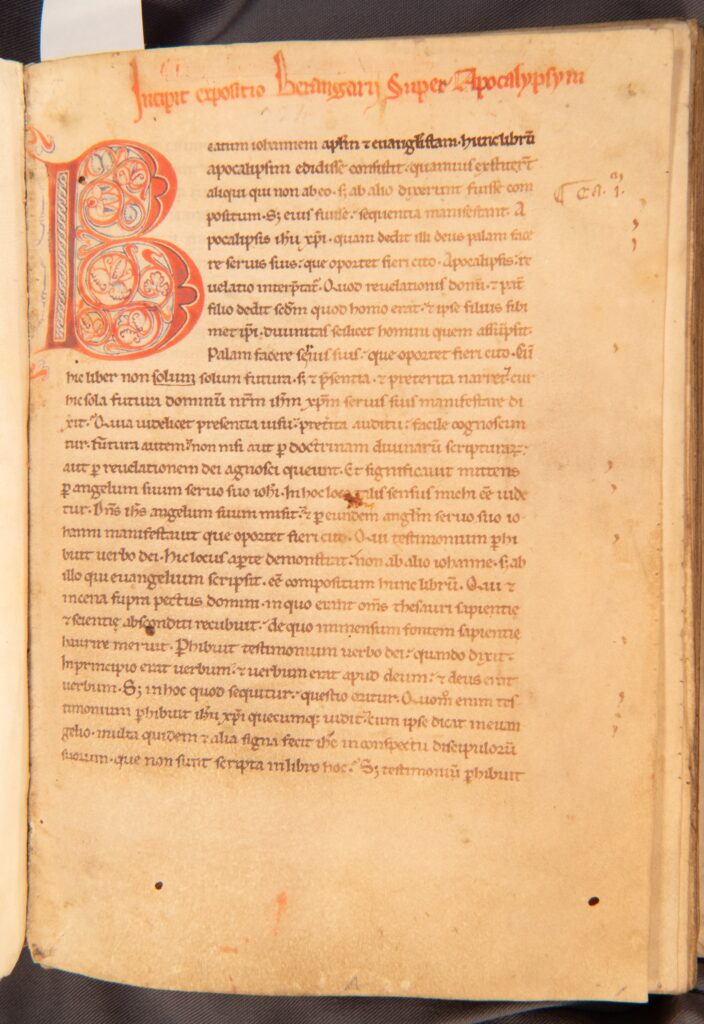 Incipit expositio Berangarij Super Apocalypsym
Beatum iohannem aplm ⁊ euangelistam· hunc librū
apocalipsim edidisse constitit· quamuis exstiterīt
aliqui qui non ab eo· s; ab alio dixerunt fuisse com
positum· Sȝ eius fuisse· sequentia manifestant· A
pocalipsis ihū xp̄i· quam dedit illi deus palam face
re seruis suis· que oportet fieri cito· Apocalipsis· re
uelatio interp̄tat᷑· Quod reuelationis donū· ⁊ pat᷑
filio dedit sedm quod homo erat· ⁊ ipse filius sibi
met ip̄i· diuinitas scilicet homini quem assūpsit·
Palam facere seruis suis· que oportet fieri cito· Cū
hic liber non solum solum futura· s; ⁊ p̄sentia· ⁊ preterita narret· cur
hic sola futura dominū nr̄m ihm xp̄m seruis suis manifestare di
xit· Quia uidelicet presentia uisu· pret̄ita auditu· facile cognoscun
tur· futura autem· non nisi aut p̱ doctrinam diuinarū scripturaꝝ·
aut p̱ reuelationem dei agnosci queunt· Et significauit mittens
p̱ angelum suum seruo suo iohī· In hoc loco talis sensus michi eē uide
tur· Dn̄s ihs̄ angelum suum misit· ⁊ p̱ eundem anglm seruo suo io-
hanni manifestauit que oportet fieri cito· Qui testimonium p̱hi
buit uerbo dei· hic locus aperte demonstrat· non ab alio iohanne· s; ab
illo qui euangelium scripsit· eē compositum hunc librū· Qui ⁊
in cena supra pectus domini· in quo erant om̄s thesauri sapientię
⁊ scientię absconditi recubuit· ⁊ de quo immensum fontem sapientię
haurire meruit· P̱hibuit testimonium uerbo dei· quando dixit·
In principio erat uerbum· ⁊ uerbum erat apud deum· ⁊ deus erat
uerbum· Sȝ in hoc quod sequitur· questio oritur· Quom̄ enim tes
timonium p̱hibuit ihū xp̄i quecumq; uidit· cum ipse dicat in euan
gelio· multa quidem ⁊ alia signa fecit ihc̄ in conspectu discipulorū
suorum· que non sunt scripta in libro hoc· Sȝ testimoniū p̱hibuit